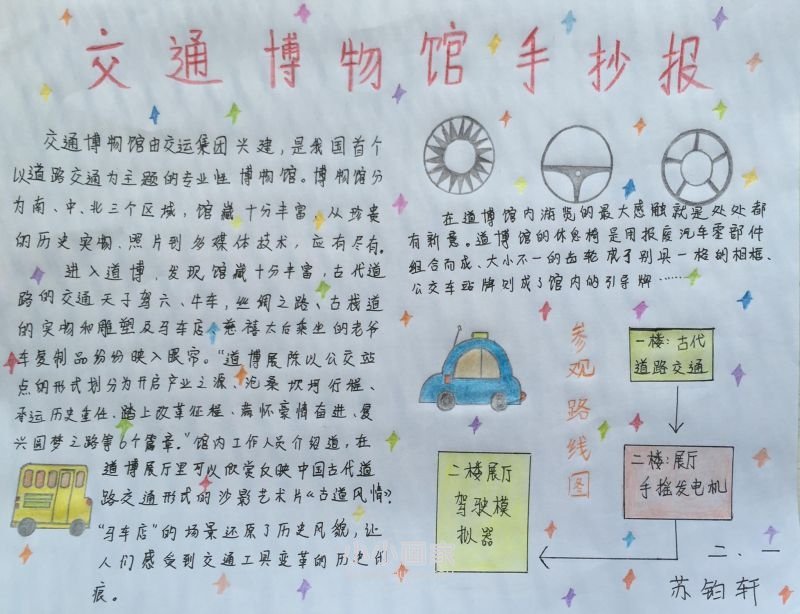 交通博物馆手抄报
交通博物馆由交运集团兴建，是我国首个
以道路交通为主题的专业性博物馆。博物馆分
为南、中、北三个区域，馆藏十分丰富，从珍贵
的历史实物、照片到多媒体技术，应有尽有。
进入道博，发现馆藏十分丰富，古代道
路的交通天子驾六、牛车，丝绸之路、古栈道
的实物和雕塑及马车店、慈禧太后乘坐的老爷
车复制品纷纷映入眼帘。“道博展陈以公交站
点的形式划分为开启产业之源、沧桑坎坷行程、
承运历史重任、踏上改革征程、满怀豪情奋进、复
兴圆梦之路等6个篇章。”馆内工作人员介绍道，在
道博展厅里可以欣赏反映中国古代道
路交通形式的沙影艺术片“古道风情”。
“马车店”的场景还原了历史风貌，让
人们感受到交通工具变革的历史
痕。
在道博馆内游览的最大感触就是处处都
有新意。道博馆的休息椅是用报废汽车零部件
组合而成、大小不一的齿轮成了别具一格的相框、
公交车站牌则成了馆内的引导牌……
参观路线图
一楼：古代
道路交通
二楼：展厅
手摇发电机
二楼展厅
驾驶模
拟器
小小画家
二、一
苏钧轩